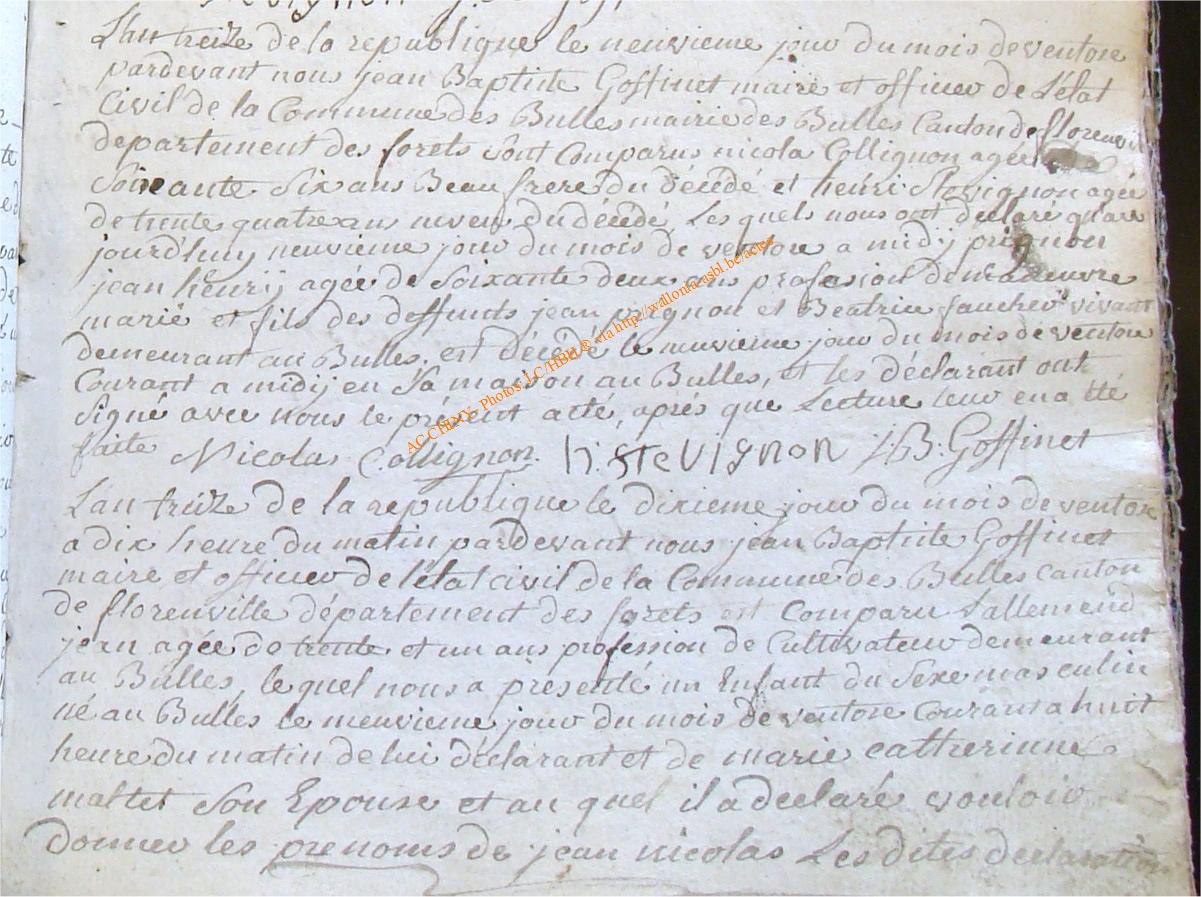 L'an treize de la republique le neuvieme jour du mois de ventose
pardevant nous jean Baptiste Goffinet maire et officier de L'état
Civil de la Commune des Bulles mairie des Bulles Canton de florenvil
departement des forets sont Comparus nicola Collignon agée de
Soixante Six ans Beau frere du décédé et henri Stevignon agée
de trente quatre ans neveu du décédé, Les quels nous ont declaré qu'au
jourdhuy neuvieme jour du mois de ventose a midij prignon
jean henrij agée de Soixante deux ans profession de manoeuvre
marié et fils des deffunts jean prignon et Beatrice faucher vivant
demeurant au Bulles, est décédé le neuvieme jour du mois de ventose
Courant a midij en sa maison au Bulles, et les déclarant ont
Signé avec nous le présent acte, aprés que Lecture leur en a été
faite Nicolas Collignon h:steVignon JB. Goffinet
L'an treize de la republique le dixieme jour du mois de ventose
a dix heure du matin pardevant nous jean Baptiste Goffinet
maire et officier de l'état civil de la Commune des Bulles canton
de florenville département des forets est Comparu Lallemend
jean agée de trente et un ans profession de Cultivateur demeurant
au Bulles, le quel nous a présenté un Enfant du Sexe masculin
né au Bulles le neuvieme jour du mois de ventose Courant a huit
heure du matin de lui déclarant et de marie catherinne
mattet son Epouse et au quel il a declaré vouloir
donner les prenoms de jean nicolas Les dites declaration
AC CHINY - Photos LC/HBH @ via http://wallonia-asbl.be/actes